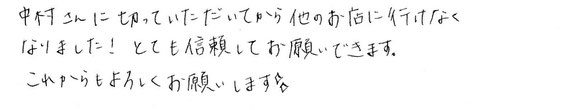 中村さんに切っていただいてから他のお店に行けなく
なりました！とても信頼してお願いできます。
これからもよろしくお願いします☆